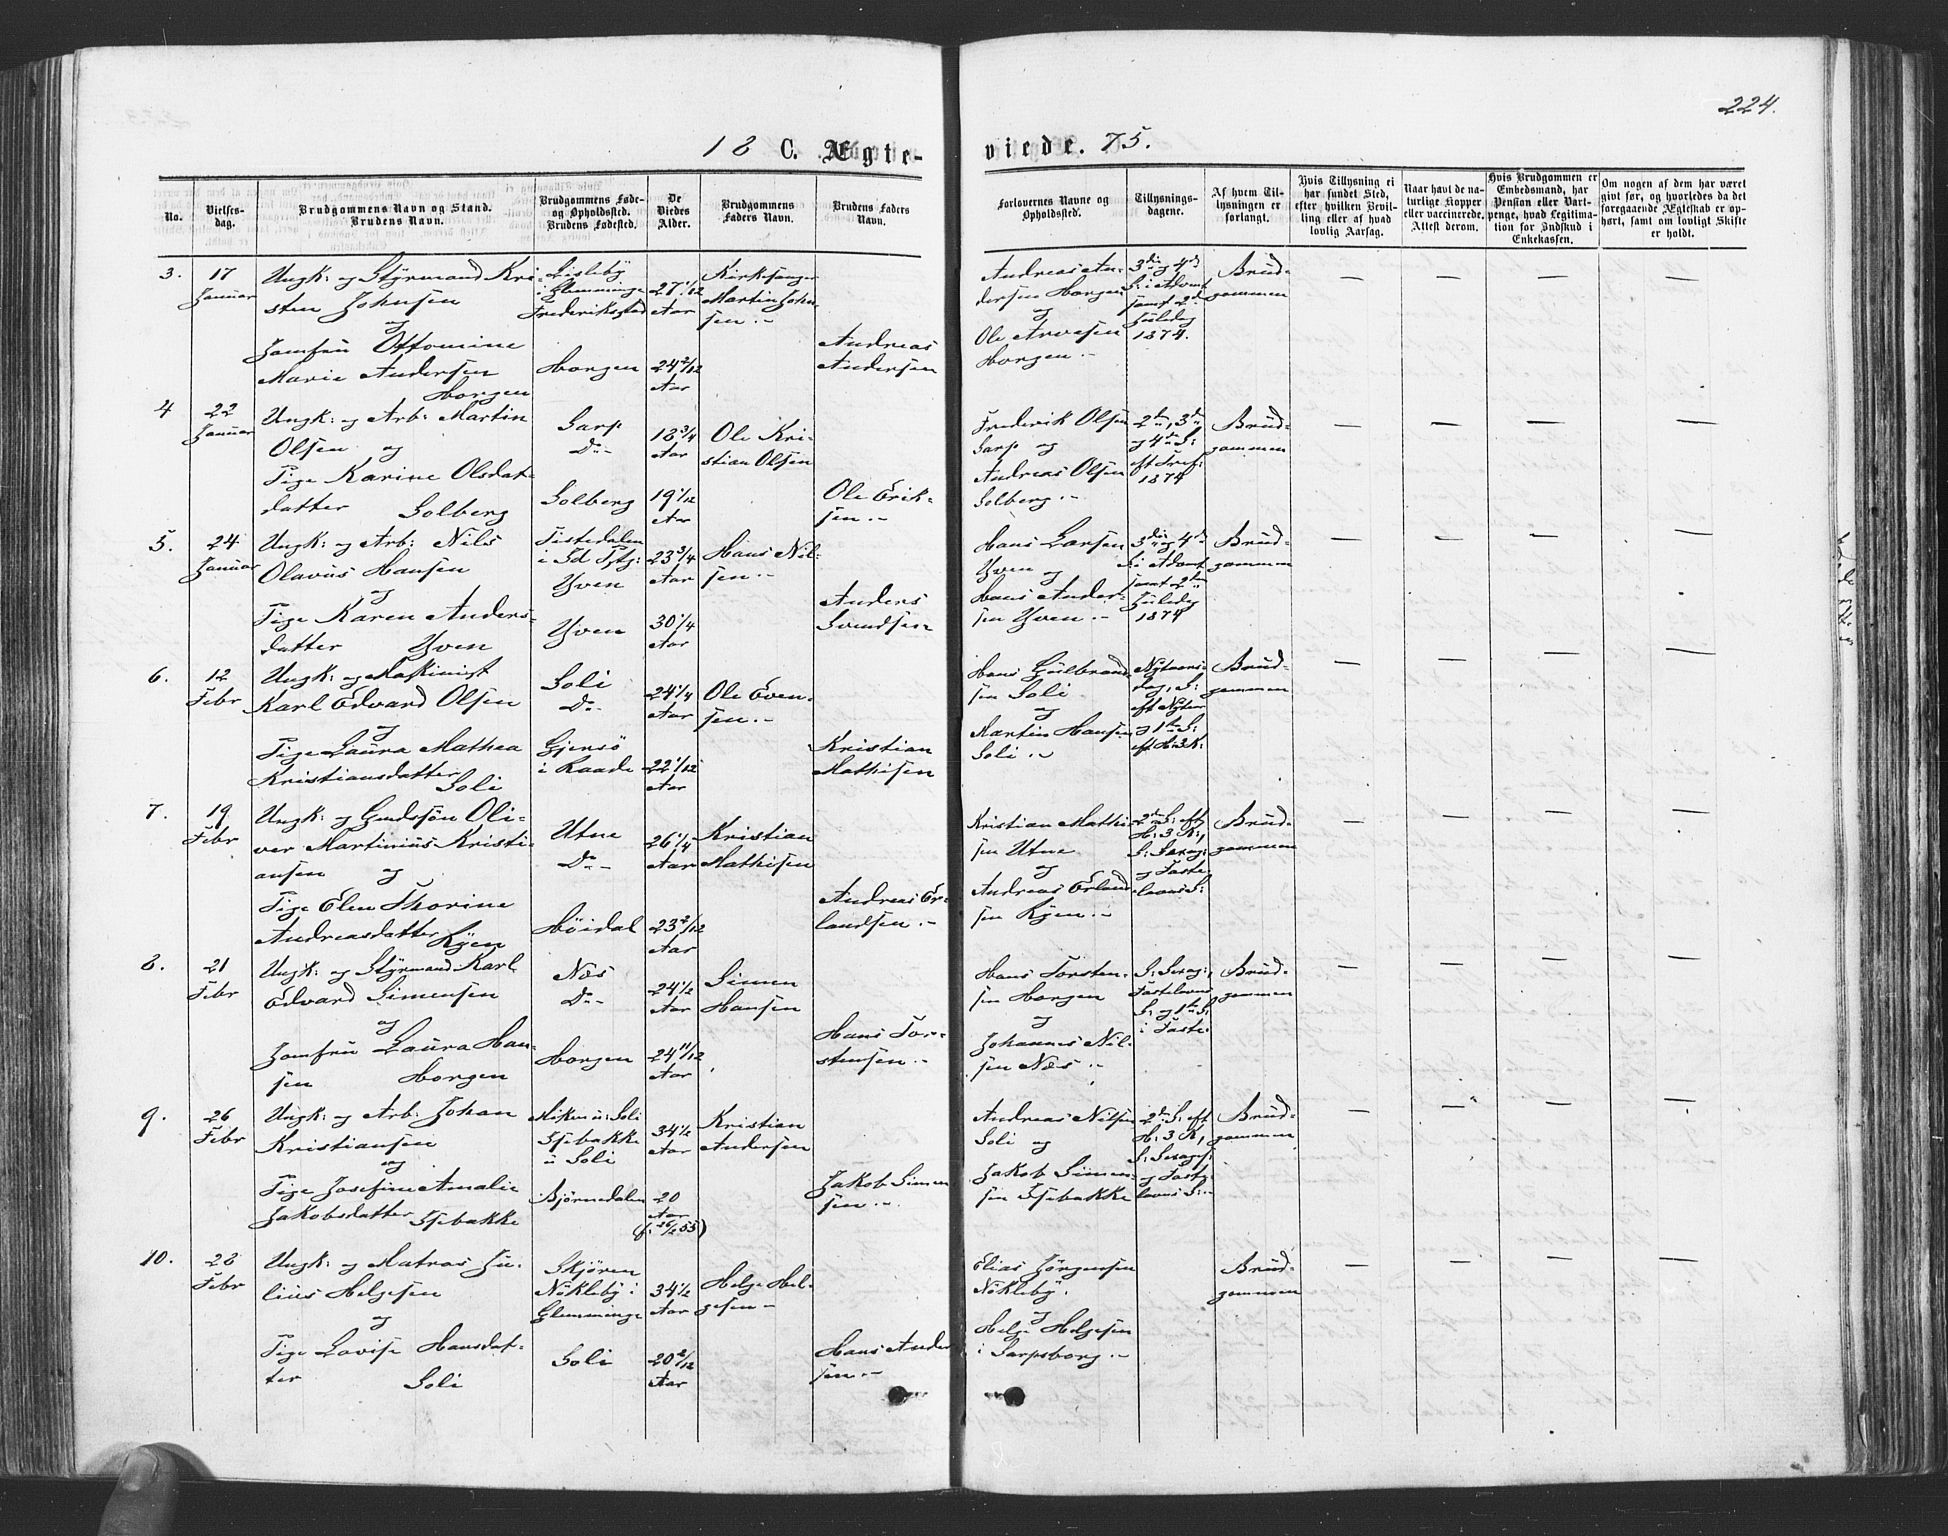 224.
18 C. Ægte-
viede. 75.
No.
Vielses-
dag.
Brudgommens Navn og Stand.
Brudens Navn.
Brudgommens Føde-
og Opholdssted.
Brudens Fødested.
De
Viedes
Alder.
Brudgommens
Faders Navn.
Brudens Faders
Navn.
Forlovernes Navne og
Opholdssted.
Tillysnings-
dagene.
Af hvem Til-
lysningen er
forlangt.
Hvis Tillysning ei
har fundet Sted,
efter hvilken Bevil-
ling eller af hvad
lovlig Aarsag.
Naar havt de na-
turlige Kopper
eller vaccinerede.
Attest derom.
Hvis Brudgommen er
Embedsmand, har
Pension eller Vart-
penge, hvad Legitima-
tion for Indskud i
Enkekassen.
Om nogen af dem har været
givt før, og hvorledes da det
foregaaende Ægteskab er op-
hørt, samt om lovligt Skifte
er holdt.
3.
17
Januar
Ungk: og Styrmand Kri-
sten Johnsen
og
Jomfru Ottomine
Marie Andersen
Horgen
Lisleby
i Glemminge
Frederiksstad
Horgen
27 1/12
Aar
24 2/12
Aar
Kirkesanger
Martin John-
sen.-
Andreas
Andersen
Andreas An-
dersen Horgen
og
Ole Arvesen
Horgen.-
3die og 4de
S: i Advent
samt 2d
Juledag
1874.
Brud-
gommen
— — — —
4
22
Januar
Ungk: og Arb: Martin
Olsen og
Pige Karine Olsdat-
datter Solberg
Sarp
Do-
Solberg
18 3/4
Aar
19 1/12
Aar
Ole Kri-
stian Olsen
Ole Erik-
sen.-
Frederik Olsen
Sarp og
Andreas Olsen
Solberg.-
2den, 3de
og 4de S:
eft Tref:
1874
Brud-
gommen
— — — —
5.
24
Januar
Ungk: og Arb: Nils
Olavus Hansen
og
Pige Karen Anders-
datter Yven
Tistedalen
i Id Pgj:
Yven
Yven
23 3/4
Aar
30 1/4
Aar
Hans Nil-
sen.-
Anders
Svendsen
Hans Larsen
Yven og
Hans Ander-
sen Yven.-
3die og 4de
S: i Advent
samt 2den
Juledag
1874
Brud-
gommen
— — — —
6.
12
Febr
Ungk: og Maskinist
Karl Edvard Olsen
og
Pige Laura Mathea
Kristiansdatter
Soli
Soli
Do-
Gjersö
i Raade
24 1/4
Aar
22 1/12
Aar
Ole Even-
sen.-
Kristian
Mathisen
Hans Gulbrand-
sen Soli
og
Martin Hansen
Soli.-
Nytaars-
dag, S:
eft Nytaar
og 1ste S:
eft H: 3 K:
Brud-
gommen
— — — —
7.
19
Febr
Ungk: og Gaardssön Oli-
ver Martinius Kristi-
ansen og
Pige Elen Thorine
Andreasdatter Ryen
Utne
Do-
Höidal
26 1/4
Aar
23 2/12
Aar
Kristian
Mathisen
Andreas Er-
landsen.-
Kristian Mathi-
sen Utne
og
Andreas Erland-
sen Ryen.-
2den S: eft
H: 3 K:,
S: Sexag:
og Faste-
lavns S:
Brud-
gommen
— — — —
8.
21
Febr
Ungk: og Styrmand Karl
Edvard Simensen
og
Jomfru Laura Han-
sen Horgen
Næs
Do-
Horgen
24 1/2
Aar
24 11/12
Aar
Simen
Hansen
Hans Tor-
stensen.-
Hans Torsten-
sen Horgen
og
Johannes Nil-
sen Næs.-
S: Sexag:,
Fastelavns
S: og 1ste S:
i Faste.
Brud-
gommen
— — — —
9.
26
Febr
Ungk: og Arb: Johan
Kristiansen
og
Pige Josefine Amalie
Jakobsdatter Isebakke
Moken u: Soli
Isebakke
u Soli
Björnedalen
34 1/2
Aar
20
Aar
(f. 26/2 55)
Kristian
Andersen
Jakob Simen-
sen.-
Andreas Nilsen
Soli og
Jakob Simen-
sen Isebakke
2den S: eft
H: 3 K,
S: Sexages:
og Faste-
lavns S:-
Brud-
gommen
— — — —
10.
28
Febr
Ungk: og Matros Ju-
lius Helgesen
og
Pige Lovise Hansdat-
ter Soli
Skjören
Nökleby i
Glemminge
Soli
34 1/2
Aar
20 2/12
Aar
Helge Hel-
gesen-
Hans Ander-
sen.-
Elias Jörgensen
Nökleby.
og
Helge Helgesen
i Sarpsborg.-
Brud-
gommen
— — — —